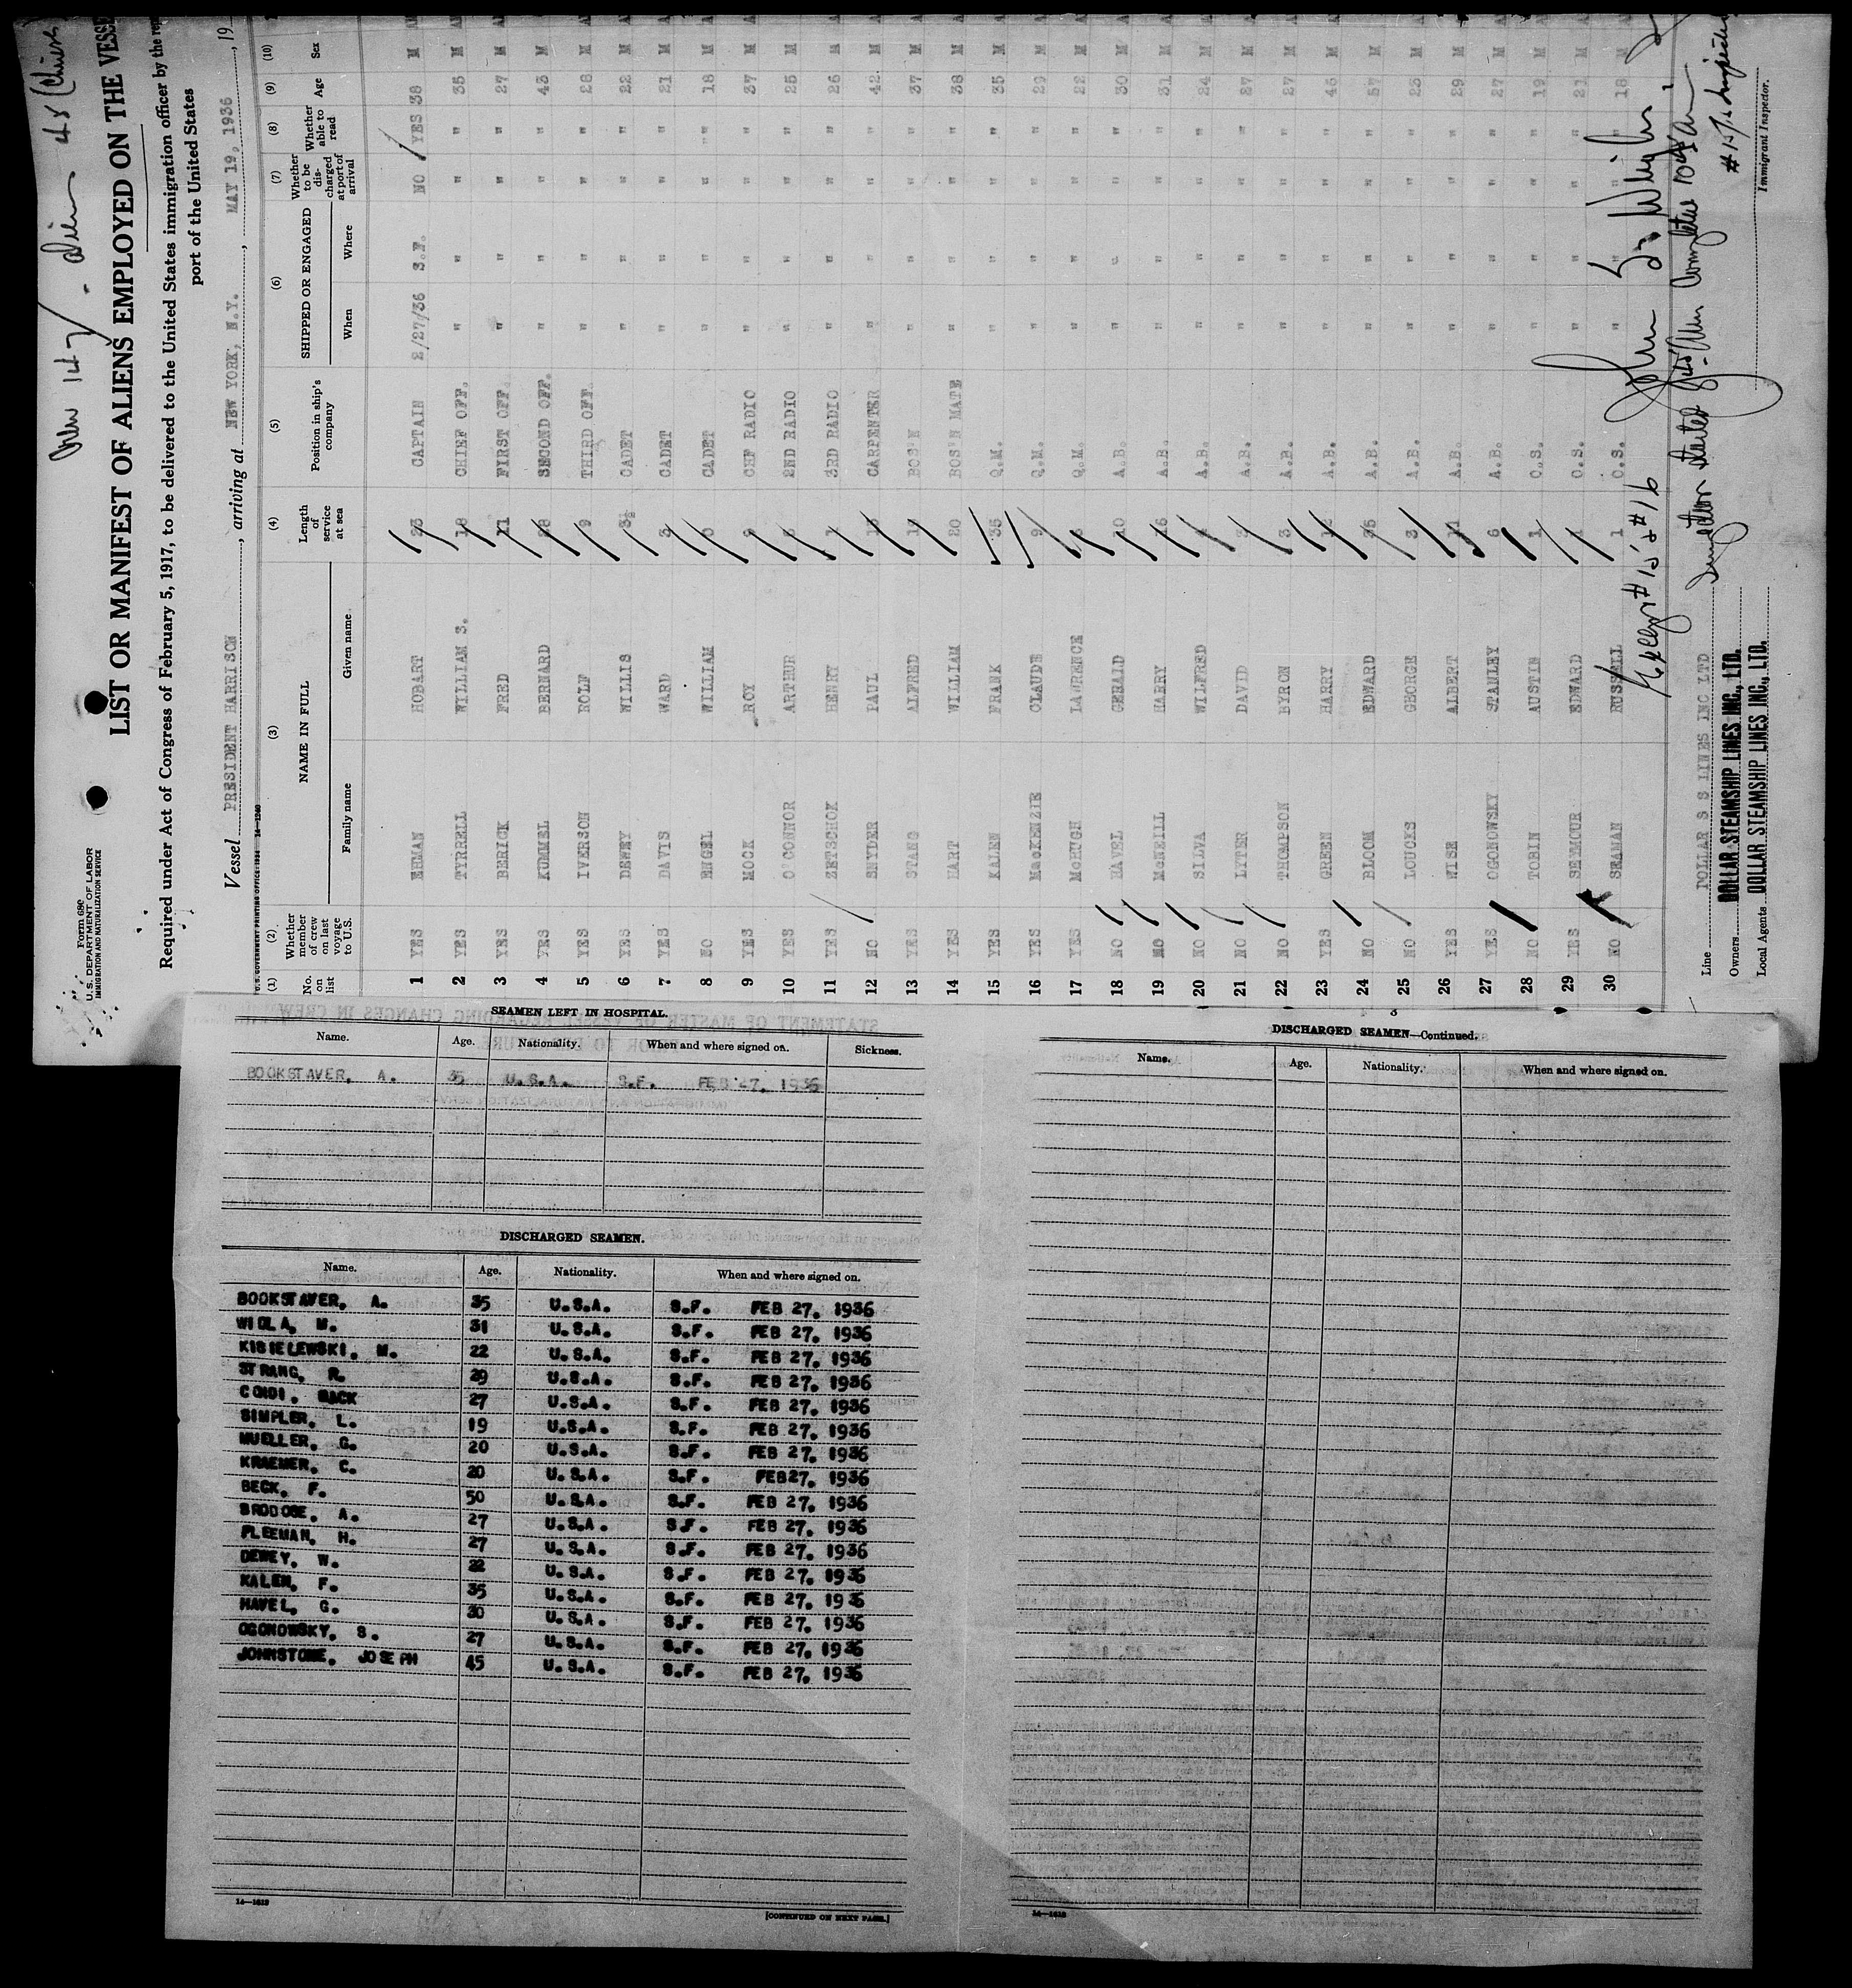 Form 680
U. S. DEPARTMENT OF LABOR
IMMIGRATION AND NATURALIZATION SERVICE
LIST OR MANIFEST OF ALIENS EMPLOYED ON THE VESSE
Required under Act of Congress of February 5, 1917, to be delivered to the United States immigration officer by the rep
port of the United States
Vessel PRESIDENT HARRISON, arriving at NEW YORK, N.Y., MAY 19, 1936, 19
U. S. GOVERNMENT PRINTING OFFICE: 1934 14—1240
(1) (2) (3) (4) (5) (6) (7) (8) (9) (10)
No. on list Whether member of crew on last voyage to U.S. NAME IN FULL Length of service at sea Position in ship's company SHIPPED OR ENGAGED Whether to be discharged at port of arrival Whether able to read Age Sex
Family name Given name When Where
1 YES EHMAN HOBART 23 CAPTAIN 2/27/36 S.F. NO YES 38 M
2 YES TYRRELL WILLIAM S. CHIEF OFF. " " " " 35 M
3 YES BERICK FRED FIRST OFF. " " " " 27 M
4 YES KUMMEL BERNARD SECOND OFF. " " " " 43 M
5 YES IVERSON ROLF 9 THIRD OFF. " " " " 28 M
6 YES DEWEY WILLIS 3½ CADET " " " " 22 M
7 YES DAVIS WARD 3 CADET " " " " 21 M
8 NO ENGEL WILLIAM 0 CADET " " " " 18 M
9 YES MOCK ROY 9 CHF RADIO " " " " 37 M
10 YES O'CONNOR ARTHUR 2ND RADIO " " " " 25 M
11 YES ZETSCHOK HENRY 3RD RADIO " " " " 26 M
12 NO SNYDER PAUL CARPENTER " " " " 42. M
13 YES STANG ALFRED BOS'N " " " " 37 M
14 YES HART WILLIAM 20 BOS'N MATE " " " " 38 M
15 YES KALEN FRANK 35 Q.M. " " " " 35 M
16 YES MacKENZIE CLAUDE 9 Q.M. " " " " 29 M
17 YES McHUGH LAWRENCE Q.M. " " " " 22 M
18 NO HAVEL GERALD 10 A.B. " " " " 30 M
19 NO McNEILL HARRY 16 A.B. " " " " 31 M
20 NO SILVA WILFRED A.B. " " " " 24 M
21 NO LYTER DAVID A.B. " " " " 27 M
22 NO THOMPSON BYRON 3 A.B. " " " " 27 M
23 YES GREEN HARRY A.B. " " " " 46 M
24 NO BLOOM EDWARD A.B. " " " " 57 M
25 NO LOUCKS GEORGE 3 A.B. " " " " 23 M
26 YES WISE ALBERT 11 A.B. " " " " 29 M
27 YES OGONOWSKY STANLEY 6 A.B. " " " " 27 M
28 NO TOBIN AUSTIN 1 O.S. " " " " 19 M
29 YES SEYMOUR EDWARD 1 O.S. " " " " 21 M
30 NO SEAMAN RUSSELL 1 O.S. " " " " 18 M
Line DOLLAR S S LINES INC LTD
Owners DOLLAR STEAMSHIP LINES INC., LTD.
Local Agents DOLLAR STEAMSHIP LINES INC., LTD.
Immigrant Inspector.
SEAMEN LEFT IN HOSPITAL.
Name. Age. Nationality. When and where signed on. Sickness.
BOOKSTAVER, A. 35 U.S.A. S.F. FEB 27, 1936
DISCHARGED SEAMEN.
Name. Age. Nationality. When and where signed on.
BOOKSTAVER, A. 35 U.S.A. S.F. FEB 27, 1936
WIOLA, M. 31 U.S.A. S.F. FEB 27, 1936
KISIELEWSKI, M. 22 U.S.A. S.F. FEB 27, 1936
STRANG, R. 29 U.S.A. S.F. FEB 27, 1936
27 U.S.A. S.F. FEB 27, 1936
SIMPLER, L. 19 U.S.A. S.F. FEB 27, 1936
MUELLER, G. 20 U.S.A. S.F. FEB 27, 1936
KRAEMER, C. 20 U.S.A. S.F. FEB27, 1936
BECK, F. 50 U.S.A. S.F. FEB 27, 1936
BRODOSE, A. 27 U.S.A. S.F. FEB 27, 1936
FLEEMAN, H. 27 U.S.A. S.F. FEB 27, 1936
DEWEY, W. 22 U.S.A. S.F. FEB 27, 1936
KALEN, F. 35 U.S.A. S.F. FEB 27, 1936
HAVEL, G. 30 U.S.A. S.F. FEB 27, 1936
OGONOWSKY, S. 27 U.S.A. S.F. FEB 27, 1936
JOHNSTONE, JOSEPH 45 U.S.A. S.F. FEB 27, 1936
14—1613
[CONTINUED ON NEXT PAGE.]
DISCHARGED SEAMEN—Continued.
Name. Age. Nationality. When and where signed on.
14—1613